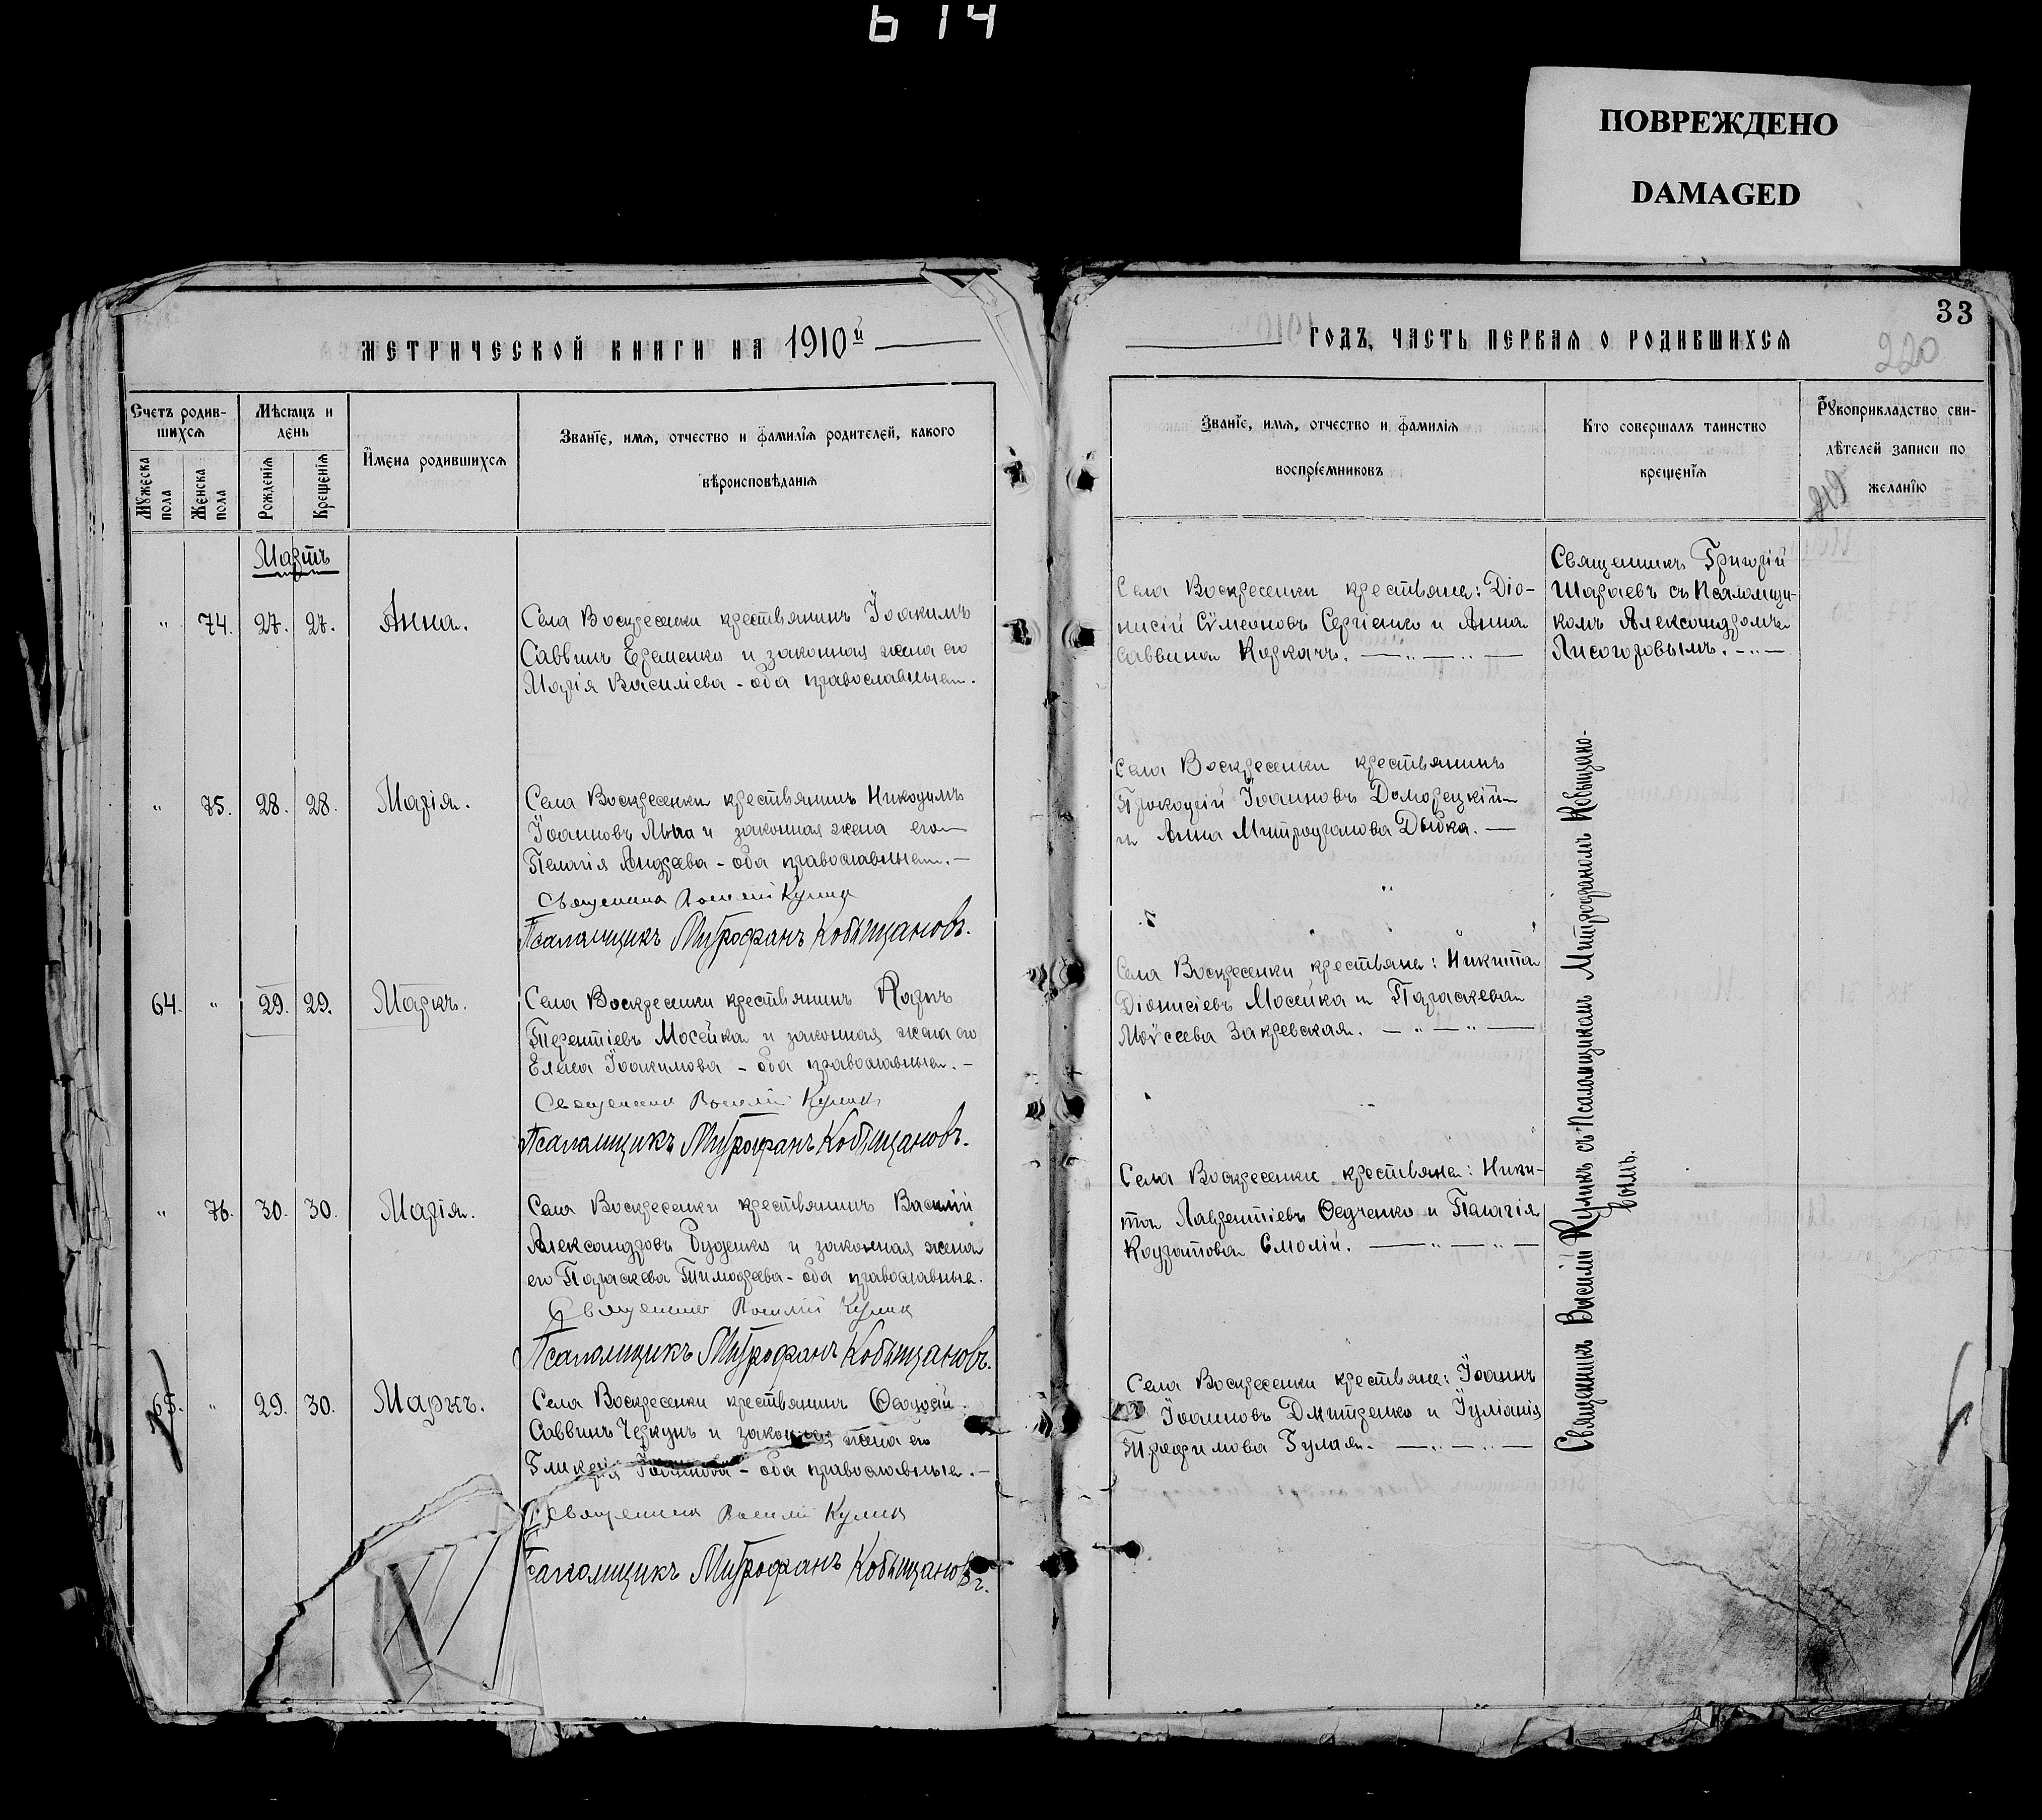 614
ПОВРЕЖДЕНО
DAMAGED
33
220
МЕТРИЧЕСКОЙ КНИГИ НА 1910й
ГОДЪ, ЧАСТЬ ПЕРВАЯ О РОДИВШИХСЯ
Счетъ родив-
шихся
Мужеска
пола
Женска
пола
Мѣсяцъ и
день
Рожденія
Крещенія
Имена родившихся
Званіе, имя, отчество и фамилія родителей, какого
вѣроисповѣданія
Званіе, имя, отчество и фамилія
воспріемниковъ
Кто совершалъ таинство
крещенія
Рукоприкладство сви-
дѣтелей записи по
желанію
Мартъ
" 74. 27. 27. Анна.
Села Воскресенки крестьянинъ Іоакимъ
Саввинъ Еременко и законная жена его
Марія Васильева - оба православные.
Села Воскресенки крестьяне: Діо-
нисій Сѵмеоновъ Сергіенко и Анна
Саввина Коркачъ.
Священникъ Григорій
Шараевъ съ Псаломщи-
комъ Александромъ
Лисогоровымъ.
" 75. 28. 28. Марія.
Села Воскресенки крестьянинъ Никодимъ
Іоанновъ и законная жена его
Пелагія Андреева - оба православные.
Священникъ Василій Куликъ
Псаломщикъ Митрофанъ Кобыщановъ.
Села Воскресенки крестьянинъ
Прокопій Іоанновъ Доморецкій
и Анна Митрофанова Дыбка.
64. " 29. 29. Маркъ.
Села Воскресенки крестьянинъ Карпъ
Терентіевъ Мосейка и законная жена его
Елена Іоакимова - оба православные.
Священникъ Василій Куликъ
Псаломщикъ Митрофанъ Кобыщановъ.
Села Воскресенки крестьяне: Никита
Діонисіевъ Мосейка и Параскева
Моѵсеева Закревская.
" 76. 30. 30. Марія.
Села Воскресенки крестьянинъ Василій
Александровъ Руденко и законная жена
его Параскева Тимофеева - оба православные.
Священникъ Василій Куликъ
Псаломщикъ Митрофанъ Кобыщановъ.
Села Воскресенки крестьяне: Ники-
та Лаврентіевъ Ѳедченко и Пелагія
Кодратова Смолій.
65. " 29. 30. Маркъ.
Села Воскресенки крестьянинъ Ѳеодосій
Саввинъ Черкунъ и законная жена его
Гликерія Іоаннова - оба православные.
Священникъ Василій Куликъ
Псаломщикъ Митрофанъ Кобыщановъ.
Села Воскресенки крестьяне: Іоаннъ
Іоанновъ Дмитренко и Іуліанія
Трофимова Гулая.
Священникъ Василій Куликъ съ Псаломщикомъ Митрофаномъ Кобыщано-
вымъ.